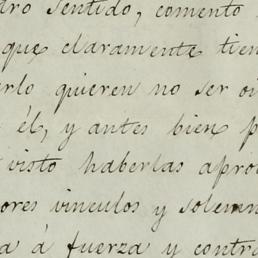 dro sentido, comento
que claramente tien
rlo quieren no ser oi
él, y antes bien p
visto haberlas apro
ores vinculos y solemn
a á fuerza y contra